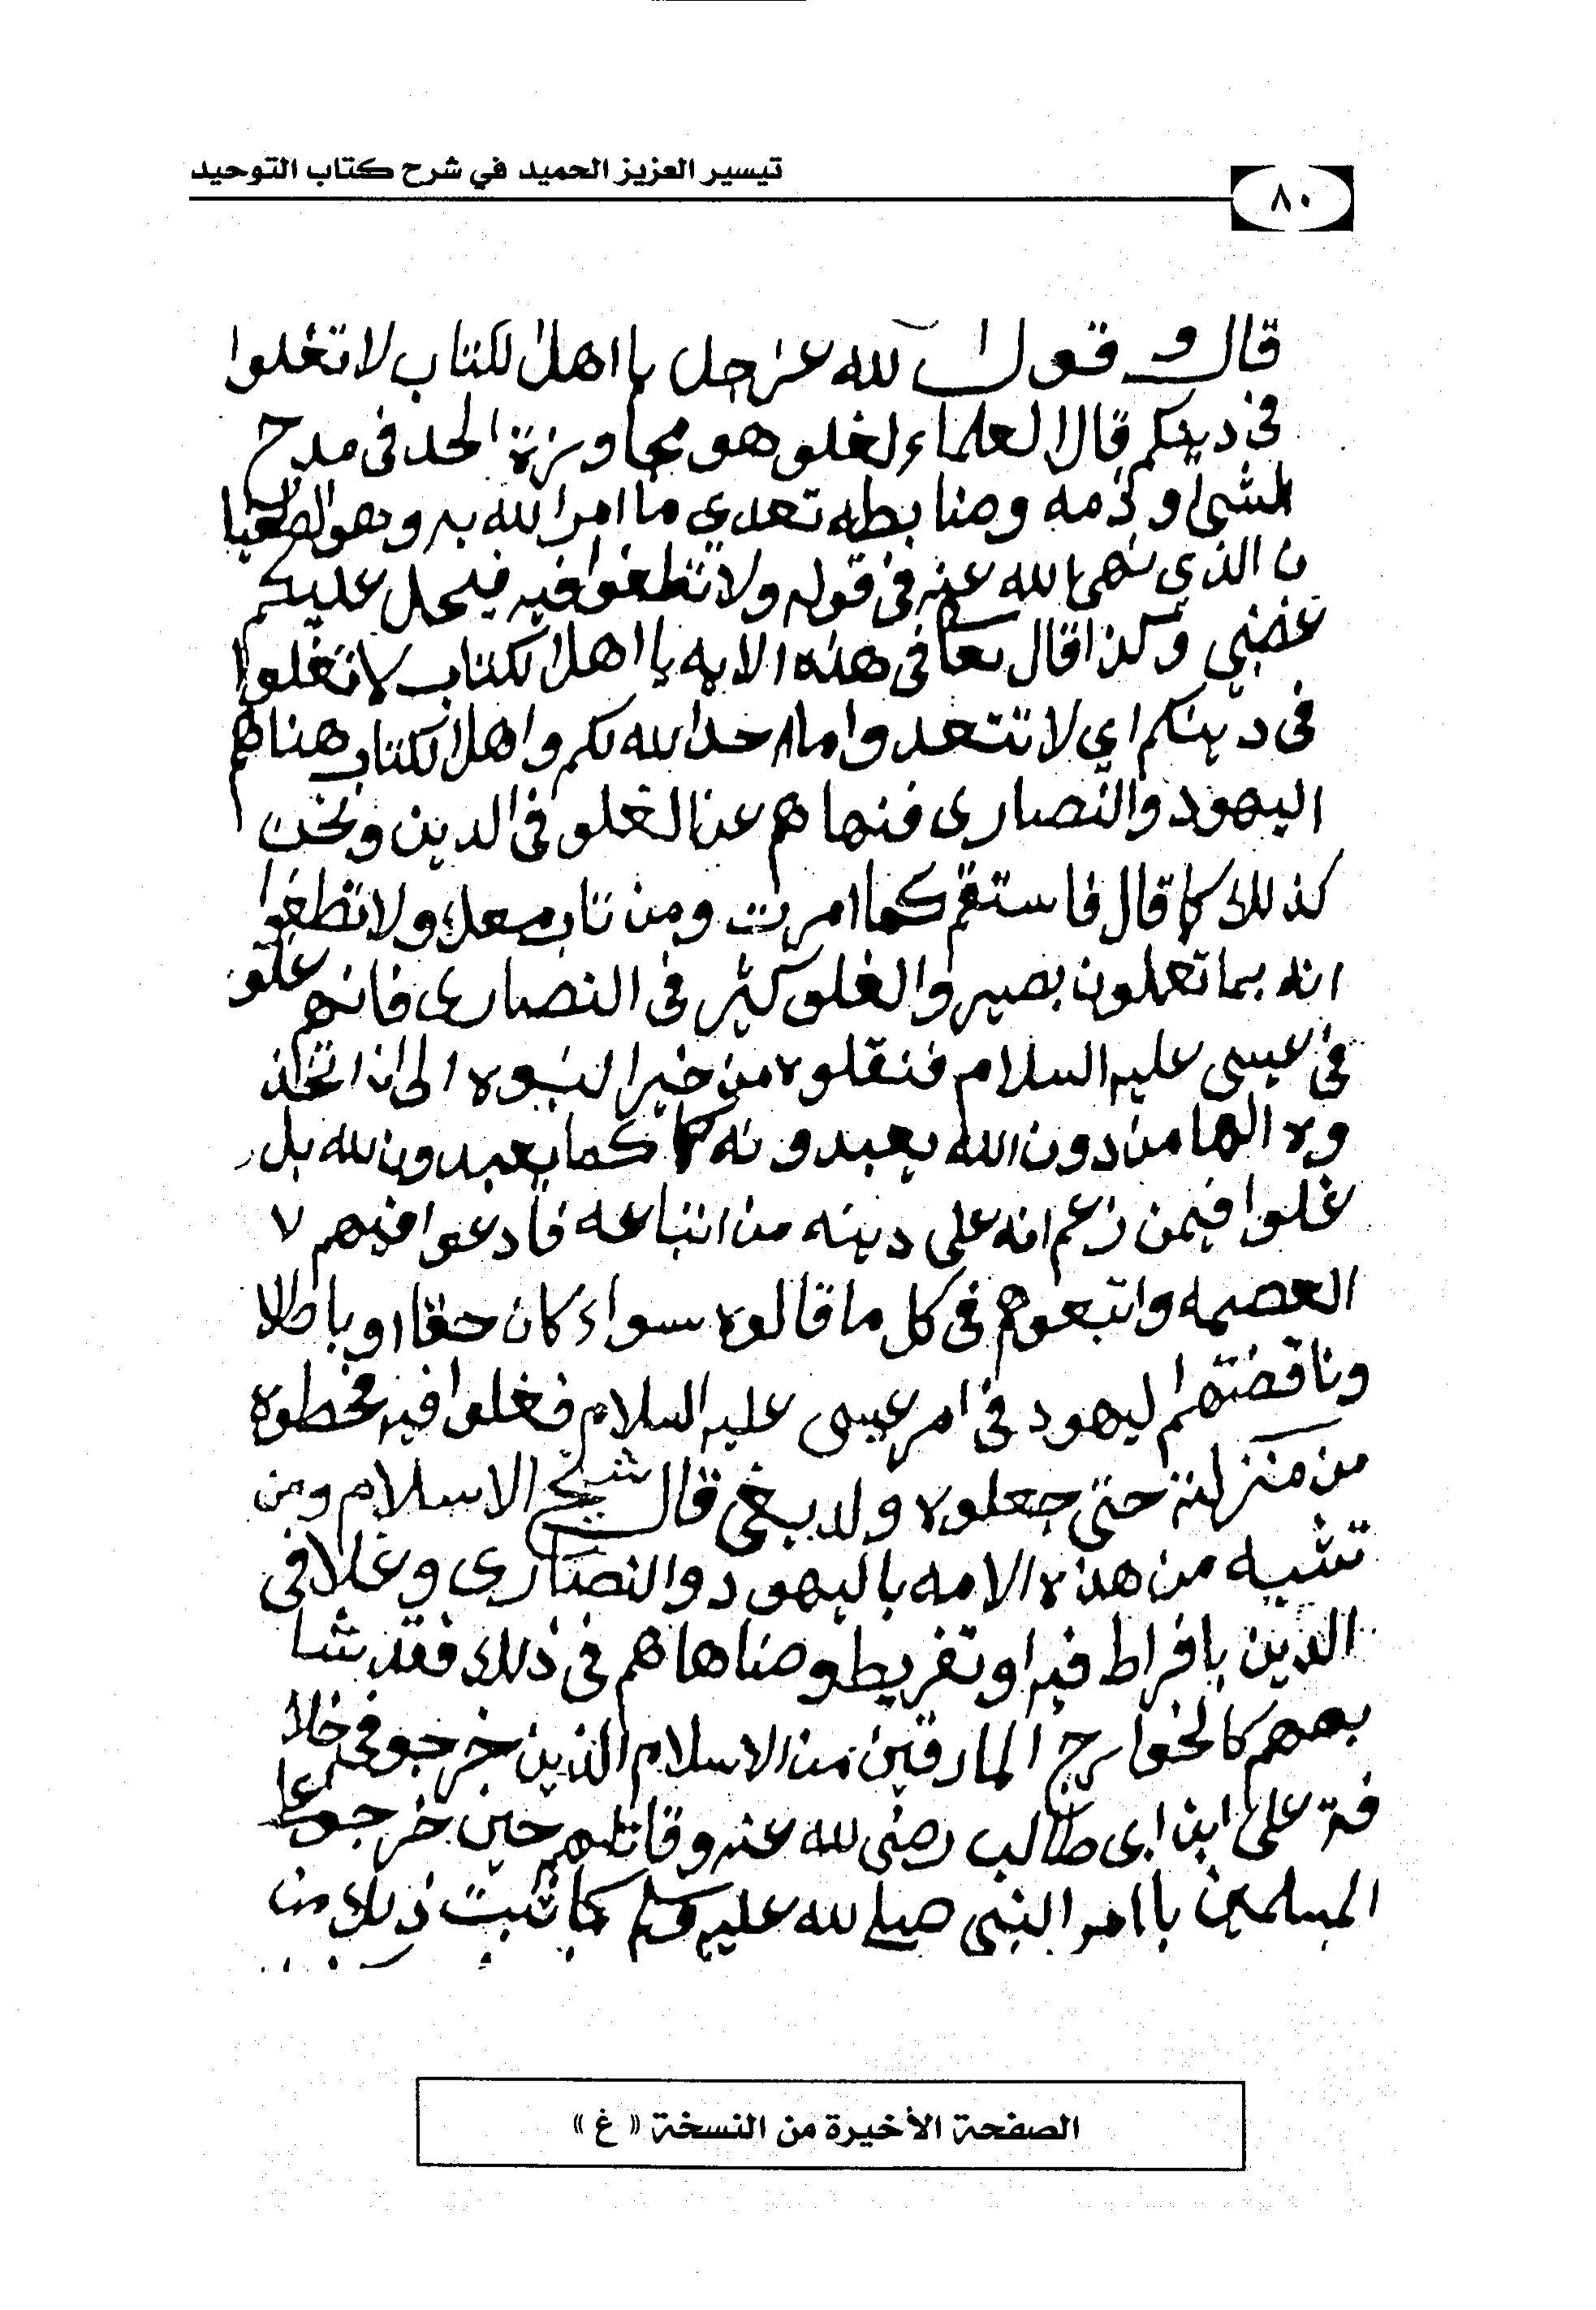 تيسير العزيز الحميد في شرح كتاب التوحيد
٨٠
قال وقول الله عز وجل يا اهل الكتاب لا تغلوا
في دينكم قال العلماء الغلو هو مجاوزة الحد في مدح
الشي او ذمه وضابطه تعدي ما امر الله به وهو الطغيا
ن الذي نهى الله عنه في قوله ولا تطغوا فيه فيحل عليكم
غضبي وكذا قال تعا في هذه الايه يا اهل الكتاب لا تغلوا
في دينكم اي لا تتعدوا ما حد الله لكم واهل الكتاب هنا هم
اليهود والنصارى فنهاهم عن الغلو في الدين ونحن
كذلك كما قال فاستقم كما امرت ومن تاب معك ولا تطغوا
انه بما تعملون بصير والغلو كثير في النصارى فانهم غلو
في عيسى عليه السلام فنقلوه من خير النبوه الى ان اتخذ
وه الها من دون الله يعبدونه كما يعبدون الله بل
غلوا فيمن زعم انه على دينه من اتباعه فادعوا فيهم
العصمه واتبعوهم في كل ما قالوه سواء كان حقا او باطلا
وناقضتهم اليهود في امر عيسى عليه السلام فغلوا فيه فحطوه
من منزلته حتى جعلوه ولد بغي قال شيخ الاسلام ومن
تشبه من هذه الامه باليهود والنصارى وغلا في
الدين بافراط فيه او تفريط وضاهاهم في ذلك فقد شا
بههم كالخوارج المارقين من الاسلام الذين خرجو في خلا
فة علي ابن ابي طالب رضي الله عنه وقاتلهم حين خرجو على
المسلمين باامر النبي صلى الله عليه وسلم كما ثبت ذلك من
الصفحة الأخيرة من النسخة «غ»